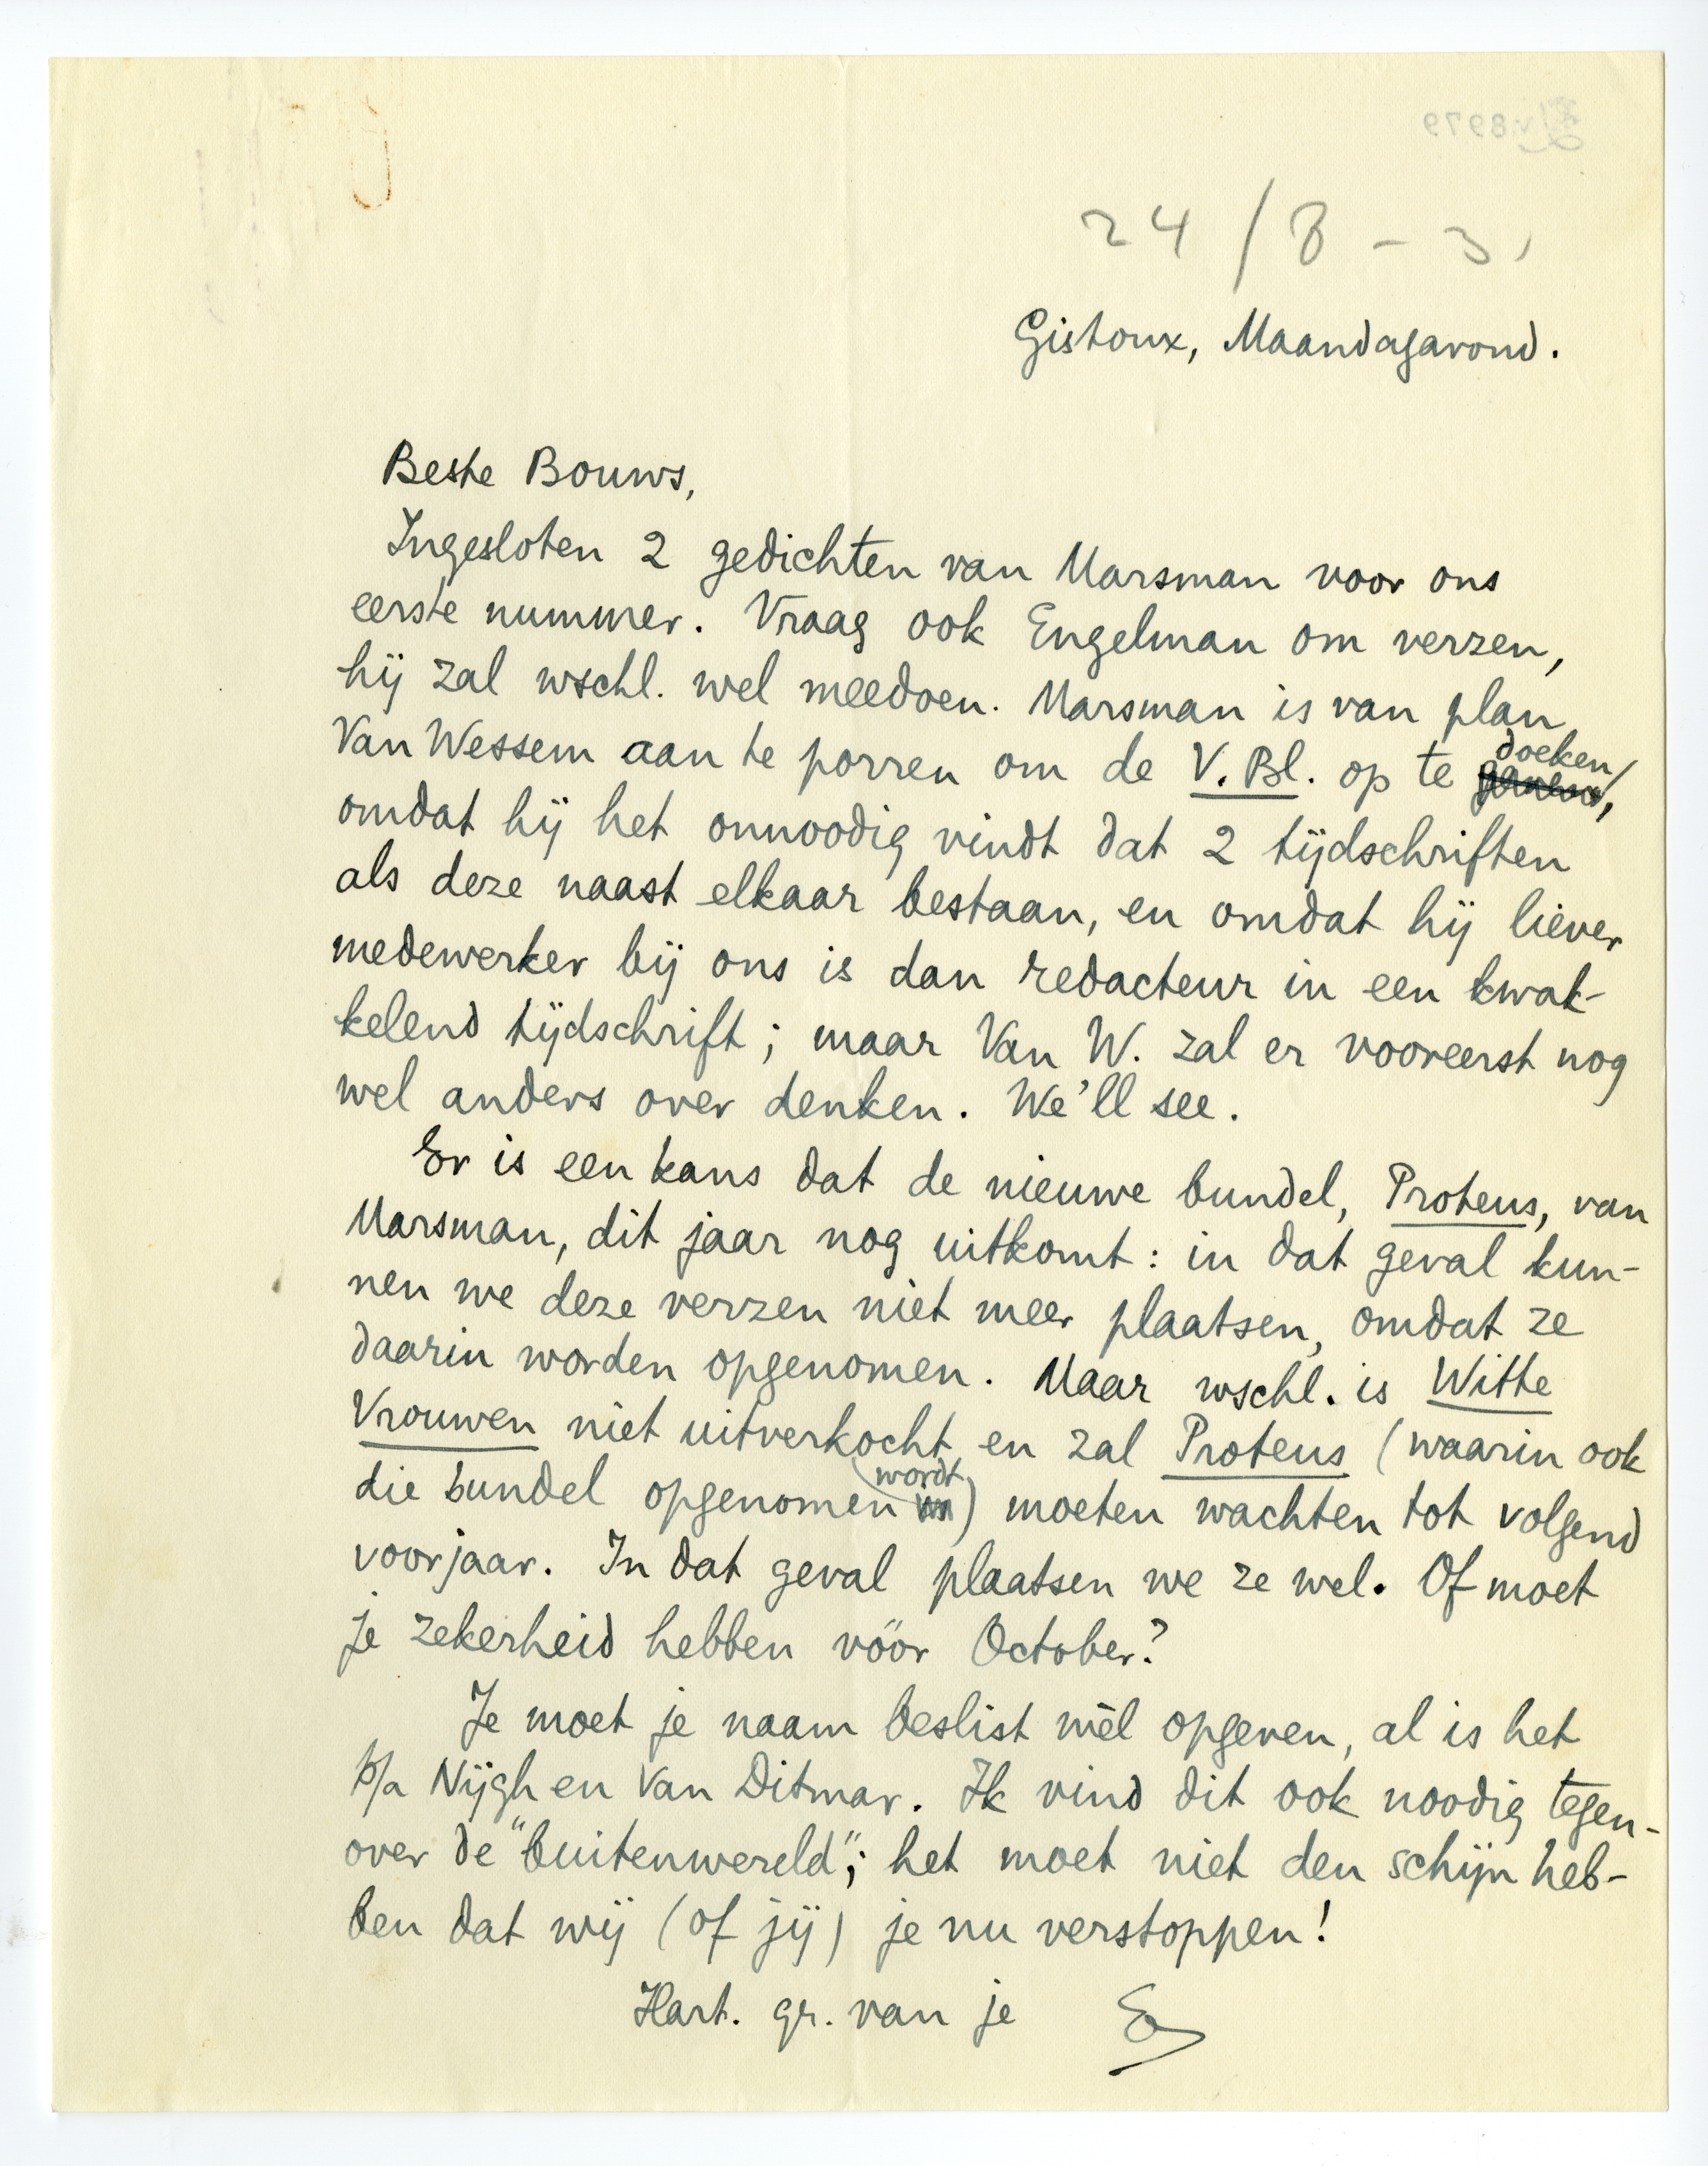 24/8 - 31
Gistoux, Maandagavond.
Beste Bouws,
Ingesloten 2 gedichten van Marsman voor ons
eerste nummer. Vraag ook Engelman om verzen,
hij zal wschl. wel meedoen. Marsman is van plan
Van Wessem aan te porren om de V. Bl. op te doeken,
omdat hij het onnoodig vindt dat 2 tijdschriften
als deze naast elkaar bestaan, en omdat hij liever
medewerker bij ons is dan redacteur in een kwak-
kelend tijdschrift; maar Van W. zal er vooreerst nog
wel anders over denken. We'll see.
Er is een kans dat de nieuwe bundel, Proteus, van
Marsman, dit jaar nog uitkomt: in dat geval kun-
nen we deze verzen niet meer plaatsen, omdat ze
daarin worden opgenomen. Maar wschl. is Witte
Vrouwen niet uitverkocht en zal Proteus (waarin ook
die bundel opgenomen wordt) moeten wachten tot volgend
voorjaar. In dat geval plaatsen we ze wel. Of moet
je zekerheid hebben vóór October?
Je moet je naam beslist wèl opgeven, al is het
p/a Nijgh en Van Ditmar. Ik vind dit ook noodig tegen-
over de "buitenwereld"; het moet niet den schijn heb-
ben dat wij (of jij) je nu verstoppen!
Hart. gr. van je E